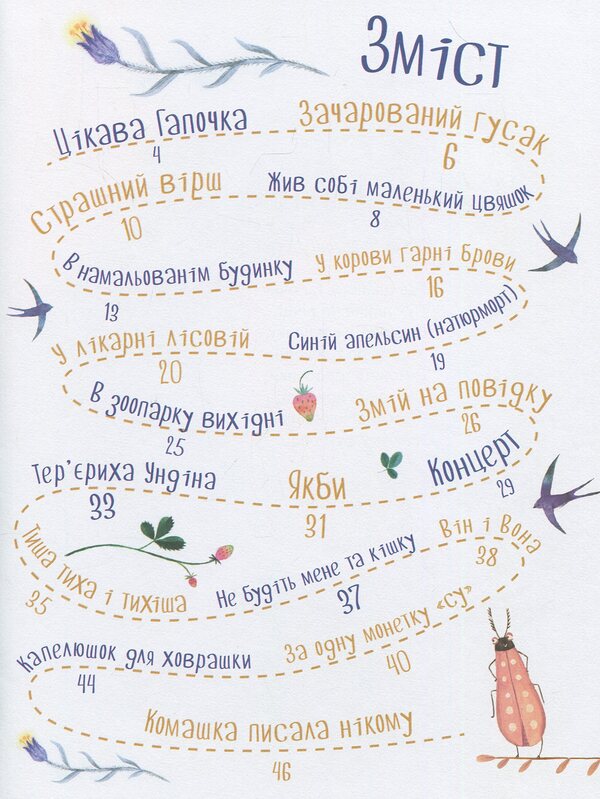 Зміст
Цікава Гапочка
4
Зачарований гусак
6
Жив собі маленький цвяшок
8
Страшний вірш
10
В намальованім будинку
13
У корови гарні брови
16
Синій апельсин (натюрморт)
19
У лікарні лісовій
20
В зоопарку вихідні
25
Змій на повідку
26
Концерт
29
Якби
31
Тер'єриха Ундіна
33
Тиша тиха і тихіша
35
Не будіть мене та кішку
37
Він і Вона
38
За одну монетку «су»
40
Капелюшок для ховрашки
44
Комашка писала нікому
46